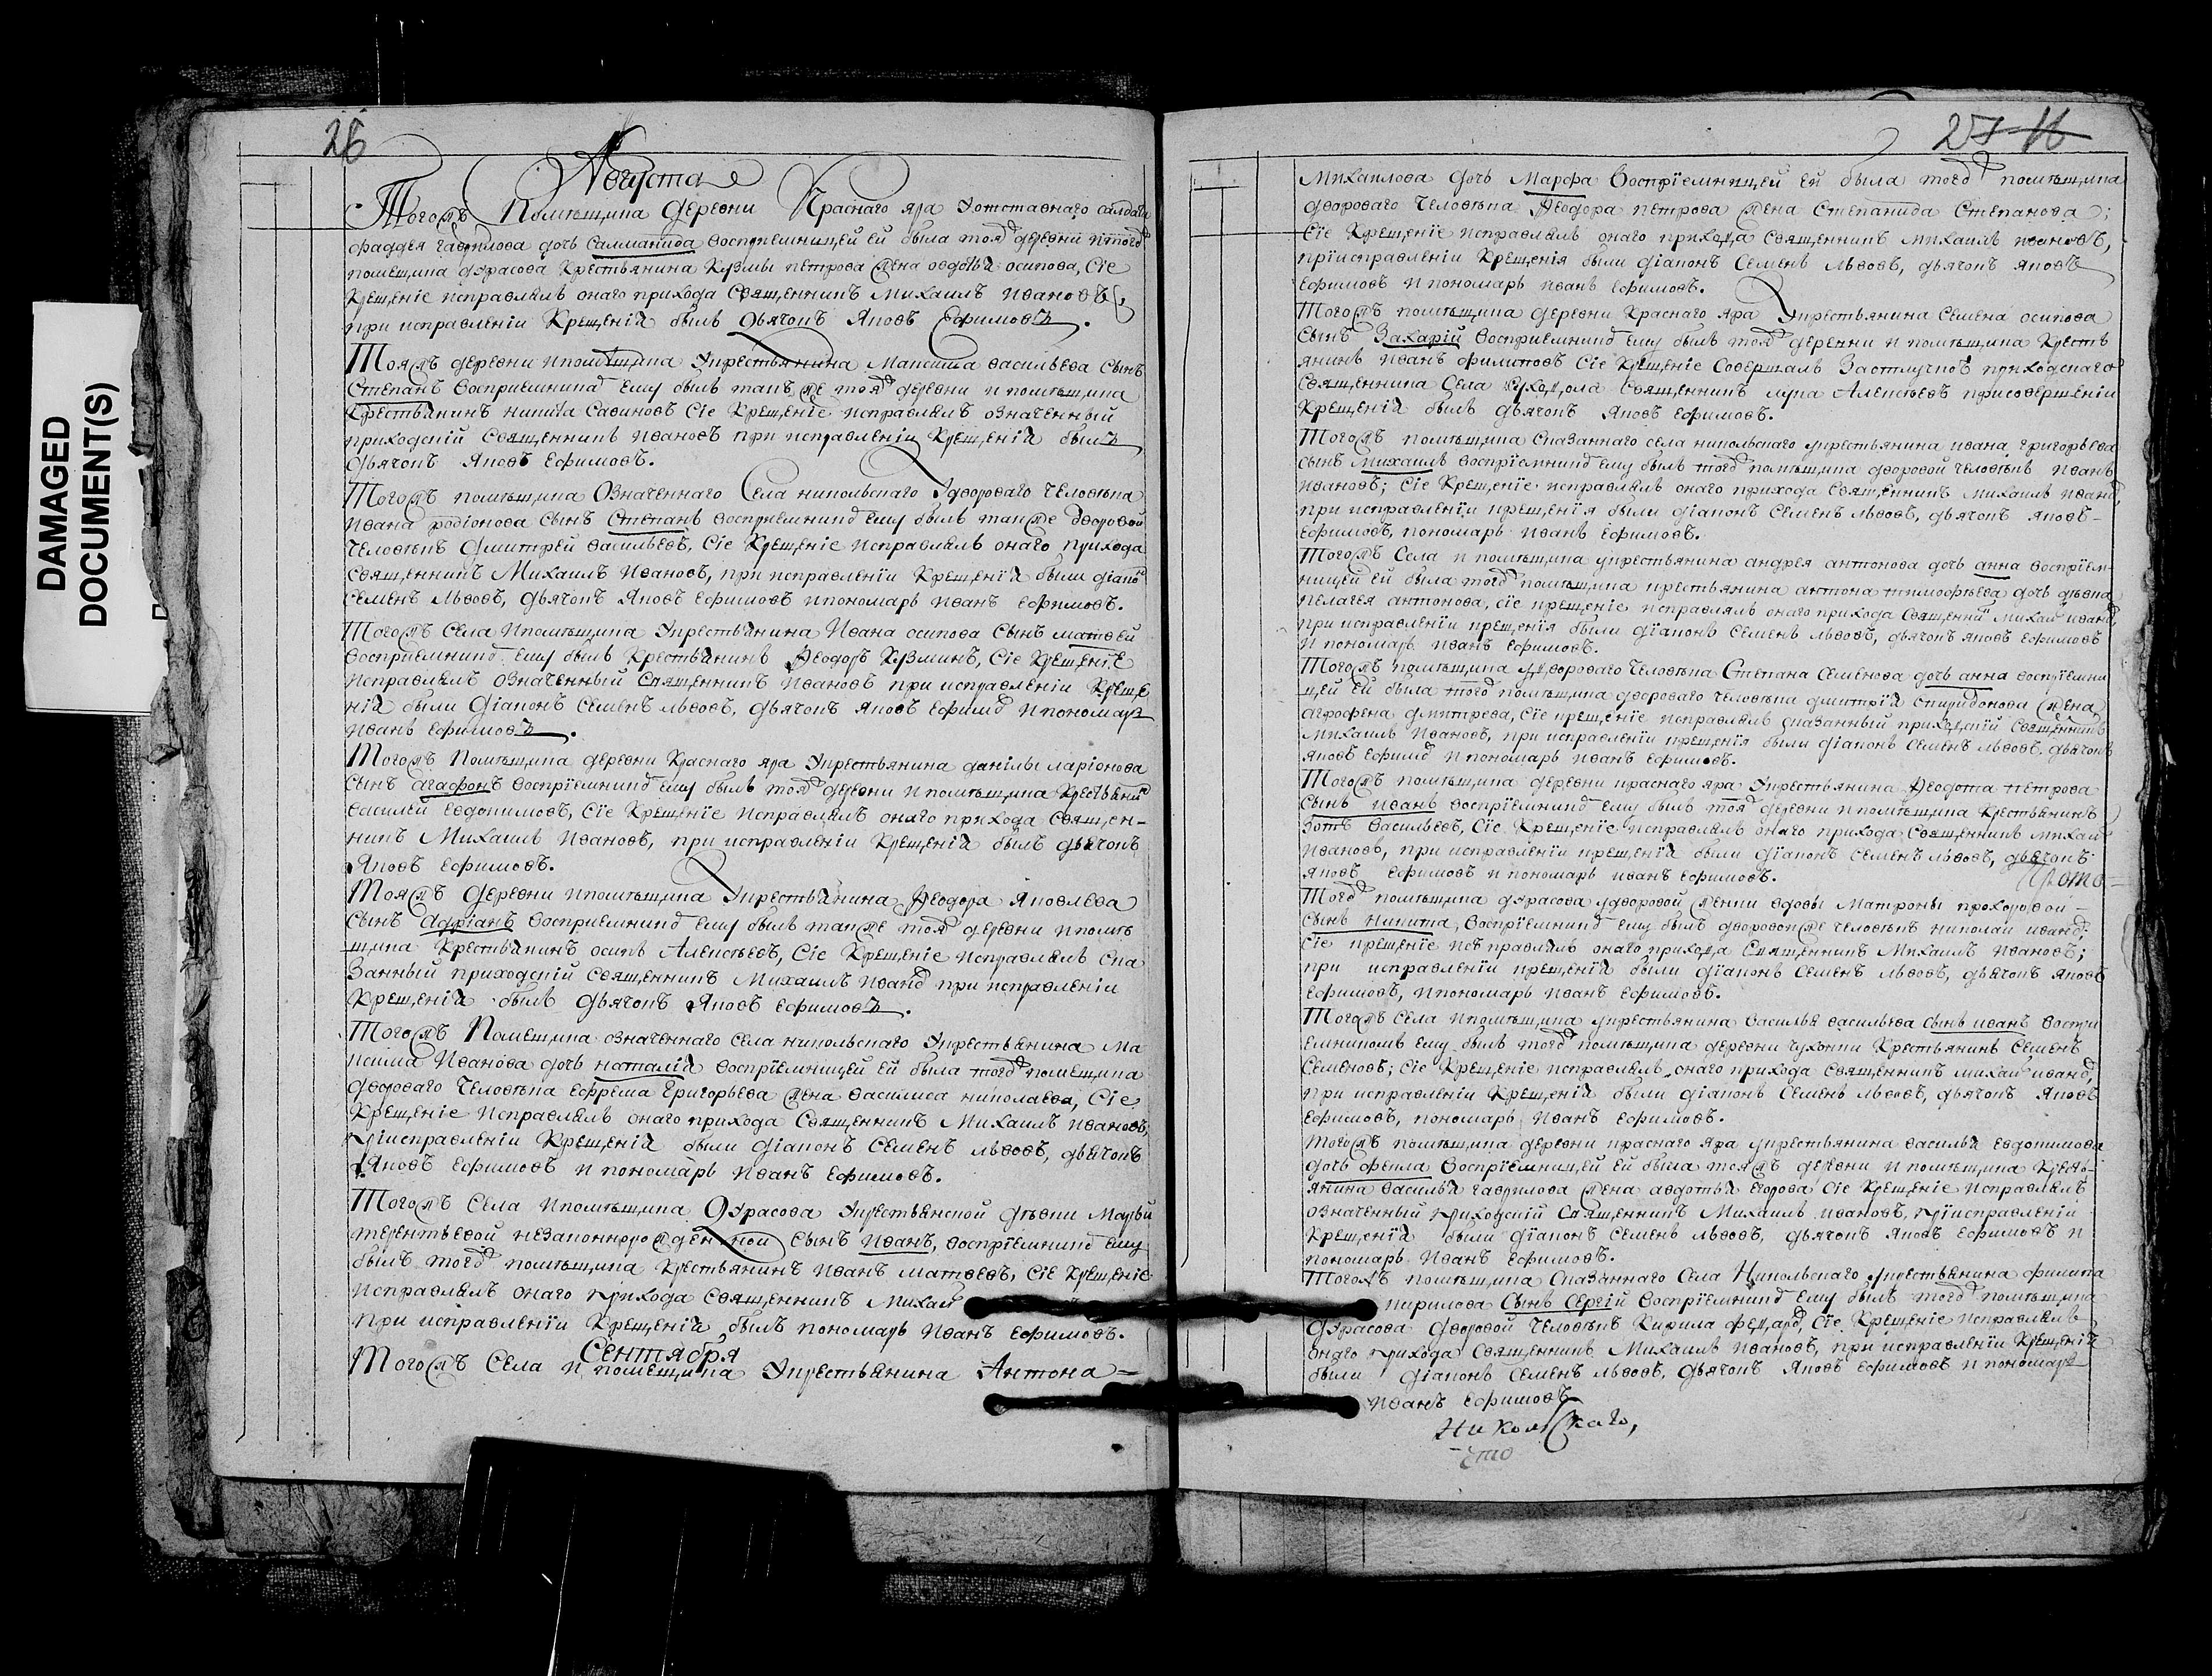 DAMAGED
DOCUMENT(S)
26
Августа
Тогожъ Помѣщика деревни Краснаго яра Уотставнаго салдата
фаддея гаврилова дочь Саломанида восприемницей ей была тояж деревни итогож
помещика дурасова Крестьянина Кузмы петрова жена овдотья осипова, Сіе
Крещеніе исправлялъ онаго прихода Священникъ Михаилъ Ивановъ
при исправленіи Крещенія былъ дьячокъ Яковъ Ефимовъ.
Тояжъ деревни ипомѣщика Укрестьянина Максима васильева Сынъ
Степанъ восприемникъ Ему былъ такъже тояж деревни и помѣщика
Крестьянинъ никита Савиновъ Сіе Крещеніе исправлялъ означенный
приходскій Священникъ Ивановъ при исправленіи Крещенія былъ
дьячокъ Яковъ Ефимовъ.
Тогожъ помѣщика Означеннаго Села никольскаго Удвороваго Человѣка
Ивана родіонова Сынъ Степанъ восприемникъ Ему былъ также дворовой
Человѣкъ Дмитрей васильевъ, Сіе Крещеніе Исправлялъ онаго прихода
Священникъ Михаилъ Ивановъ, при исправленіи Крещенія были діакон
Семенъ львовъ, дьячокъ Яковъ Ефимовъ ипономарь Иванъ Ефимовъ.
Тогожъ Села Ипомѣщика Укрестьянина Ивана осипова Сынъ матвей
восприемникъ Ему былъ Крестьянинъ Ѳеодоръ Кузминъ, Сіе Крещеніе
Исправлялъ означенный Священникъ Ивановъ при исправленіи Креще
нія были Діаконъ Семенъ львовъ, дьячокъ Яковъ Ефимов ипономарь
Иванъ Ефимовъ.
Тогожъ Помѣщика деревни Краснаго яра Укрестьянина данилы ларіонова
Сынъ агафонъ восприемникъ Ему былъ тояж деревни и помѣщика Крестьянин
василей Евдокимовъ, Сіе Крещеніе Исправлялъ онаго прихода Священ-
никъ Михаилъ Ивановъ, при исправленіи Крещенія былъ дьячокъ
Яковъ Ефимовъ.
Тояжъ Деревни ипомѣщика Укрестьянина Ѳеодора Яковлева
Сынъ Адріанъ восприемникъ Ему былъ также тояж деревни ипомѣ
щика Крестьянинъ осипъ Алексѣевъ, Сіе Крещеніе Исправлялъ Ска
занный приходскій Священникъ Михаилъ Иванов при исправленіи
Крещенія былъ дьячокъ Яковъ Ефимовъ.
Тогожъ Помещика означеннаго села никольскаго Укрестьянина Ма
ксима Иванова дочь наталія восприемницей ей была тогож помещика
двороваго Человѣка Ефрема Григорьева жена василиса николаева, Сіе
Крещеніе Исправлялъ онаго прихода Священникъ Михаилъ Ивановъ,
приисправленіи Крещенія были діаконъ Семенъ львовъ, дьячокъ
Яковъ Ефимовъ и пономарь Иванъ Ефимовъ.
Тогожъ Села Ипомѣщика Дурасова Укрестьянской дѣвки Марьи
терентьевой незаконнорожденной Сынъ Иванъ, восприемникъ Ему
былъ тогож помѣщика Крестьянинъ Иванъ матвеевъ, Сіе Крещеніе
исправлялъ онаго прихода Священникъ Михаи
при исправленіи Крещенія былъ пономарь Иванъ Ефимовъ.
Сентября
Тогожъ Села и помещика Укрестьянина Антона=
27 16
Михаилова дочь Марфа Восприемницей ей была тогож помѣщика
двороваго Человѣка Ѳеодора петрова жена Степанида Степанова;
Сіе Крещеніе исправлялъ онаго прихода Священникъ Михаилъ ивановъ,
приисправленіи Крещенія были діаконъ Семенъ львовъ, дьячокъ Яковъ
Ефимовъ и пономарь иванъ Ефимовъ.
Тогожъ помѣщика деревни Краснаго яра Укрестьянина Семена осипова
Сынъ Захарій восприемникъ Ему былъ тояж деревни и помѣщика Кресть
янинъ Иванъ филиповъ Сіе Крещеніе Совершалъ Заотлучкою приходскаго
Священника Села Суходола Священникъ лука Алексѣевъ присовершеніи
Крещенія былъ дьячокъ Яковъ Ефимовъ.
Тогожъ помѣщика Сказаннаго села никольскаго укрестьянина ивана григорьева
сынъ Михаилъ восприемникъ Ему былъ тогож помѣщика дворовой Человѣкъ Иванъ
Ивановъ; Сіе Крещеніе исправлялъ онаго прихода Священникъ Михаилъ Иванов,
при исправленіи крещенія были діаконъ Семенъ львовъ, дьячокъ Яковъ-
Ефимовъ, пономарь Иванъ Ефимовъ.
Тогожъ Села и помѣщика укрестьянина андрея антонова дочь анна восприем-
ницей ей была тогож помѣщика крестьянина антона тимофѣева дочь дѣвка
пелагея антонова, сіе крещеніе исправлялъ онаго прихода Священни Михаи иванов,
при исправленіи крещенія были діаконъ Семенъ львовъ, дьячокъ яковъ Ефимовъ
и пономарь Иванъ Ефимовъ.
Тогожъ помѣщика Удвороваго Человѣка Степана Семенова дочь анна восприемни
цей ей была тогож помѣщика двороваго человѣка дмитрія спиридонова жена
аграфена дмитрева, Сіе крещеніе исправлялъ сказанный приходскій Священникъ
Михаилъ Ивановъ, при исправленіи крещенія были діаконъ Семенъ львовъ, дьячокъ
яковъ Ефимов и пономарь Иванъ Ефимовъ.
Тогожъ помѣщика деревни краснаго яра Укрестьянина Ѳеодота петрова
Сынъ иванъ восприемникъ Ему былъ тояж деревни ипомѣщика Крестьянинъ
Зотъ васильевъ, Сіе Крещеніе исправлялъ онаго прихода Священникъ михаи
Ивановъ, при исправленіи крещенія были діаконъ Семенъ львовъ, дьячокъ
яковъ Ефимовъ и пономарь иванъ Ефимовъ.
Тогож помѣщика дурасова удворовой женки вдовы Матроны прохоровой-
Сынъ никита, восприемникъ Ему былъ дворовойже Человѣкъ николаи иванов;
Сіе крещеніе исправлялъ онаго прихода Священникъ Михаилъ Ивановъ;
при исправленіи крещенія были діаконъ Семенъ львовъ, дьячокъ яковъ
Ефимовъ, ипономарь Иванъ Ефимовъ.
Тогожъ Села ипомѣщика укрестьянина василья васильева сынъ иванъ воспри
емникомъ Ему былъ тогож помѣщика деревни чухонки Крестьянинъ Семенъ
Семеновъ; Сіе Крещеніе исправлялъ онаго прихода Священникъ михаи иванов,
при исправленіи Крещенія были діаконъ Семенъ львовъ, дьячокъ Яковъ
Ефимовъ, пономарь Иванъ Ефимовъ.
Тогожъ помѣщика деревни краснаго яра укрестьянина василья евдокимова
дочь фекла восприемницей ей была тояжъ деревни и помѣщика Кресть-
янина василья гаврилова жена авдотья егорова, Сіе Крещеніе исправлялъ
означенный приходскій Священникъ Михаилъ ивановъ, приисправленіи
Крещенія были діаконъ Семенъ львовъ, дьячокъ Яковъ Ефимовъ и
пономарь Иванъ Ефимовъ.
Тогожъ помѣщика Сказаннаго Села Никольскаго укрестьянина филипа
кирилова Сынъ Сергій восприемникъ Ему былъ тогож помѣщика
Дурасова дворовой Человѣкъ Кирила Сіе Крещеніе исправлялъ
онаго прихода Священникъ Михаилъ Ивановъ, при исправленіи Крещенія
были діаконъ Семенъ львовъ, дьячокъ Яковъ Ефимовъ и пономарь
Иванъ Ефимовъ
Никольскаго,